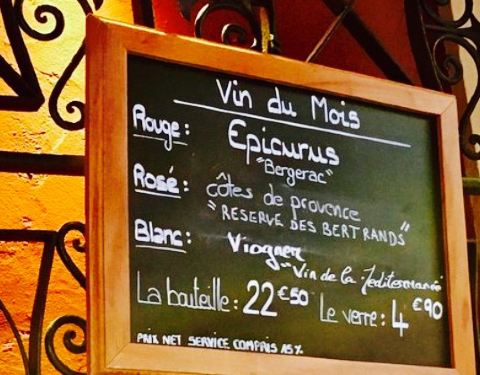 Vin du Mois
Rouge: Epicurus
"Bergerac"
Rosé: côtes de provence
"RESERVE DES BERTRANDS"
Blanc: Viogner
"Vin de la Mediterranée
La bouteille: 22 €50 Le verre: 4 €90
PRIX NET SERVICE COMPRIS 15%